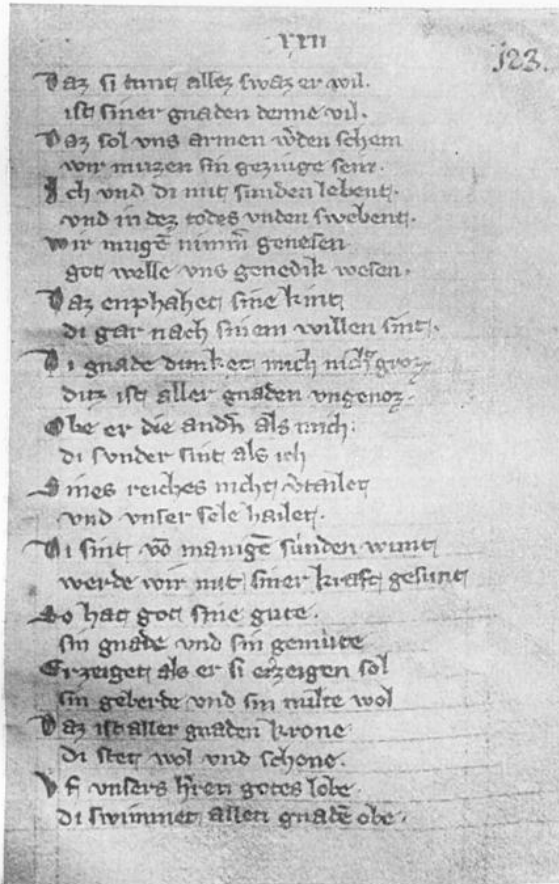 XXII
123.
Daz si tunt allez swaz er wil.
ist siner gnaden denne vil.
Daz sol vns armen w̄den schein
wir muzen sin geziuge sein.
Ich vnd di mit sunden lebent.
vnd in dez todes vnden swebent.
wir mugē nimm̄ genesen
got welle vns genedik wesen.
Daz enphahet sine kint
di gar nach sinem willen sint.
Di gnade dunket mich nicht groz
ditz ist aller gnaden vngenoz.
Obe er die andn̄ als mich.
di sunder sint als ich
Sines reiches nicht v̄tailet
vnd vnser sele hailet.
Di sint vō manigē súnden wunt
werde wir mit siner kraft gesunt
So hat got sine gute.
sin gnade vnd sin gemúte
Erzeiget als er si erzeigen sol
sin geberde vnd sin milte wol
Daz ist aller gnaden krone
di stet wol vnd schone.
Vf vnsers h̄ren gotes lobe
di swimmet allen gnadē obe.